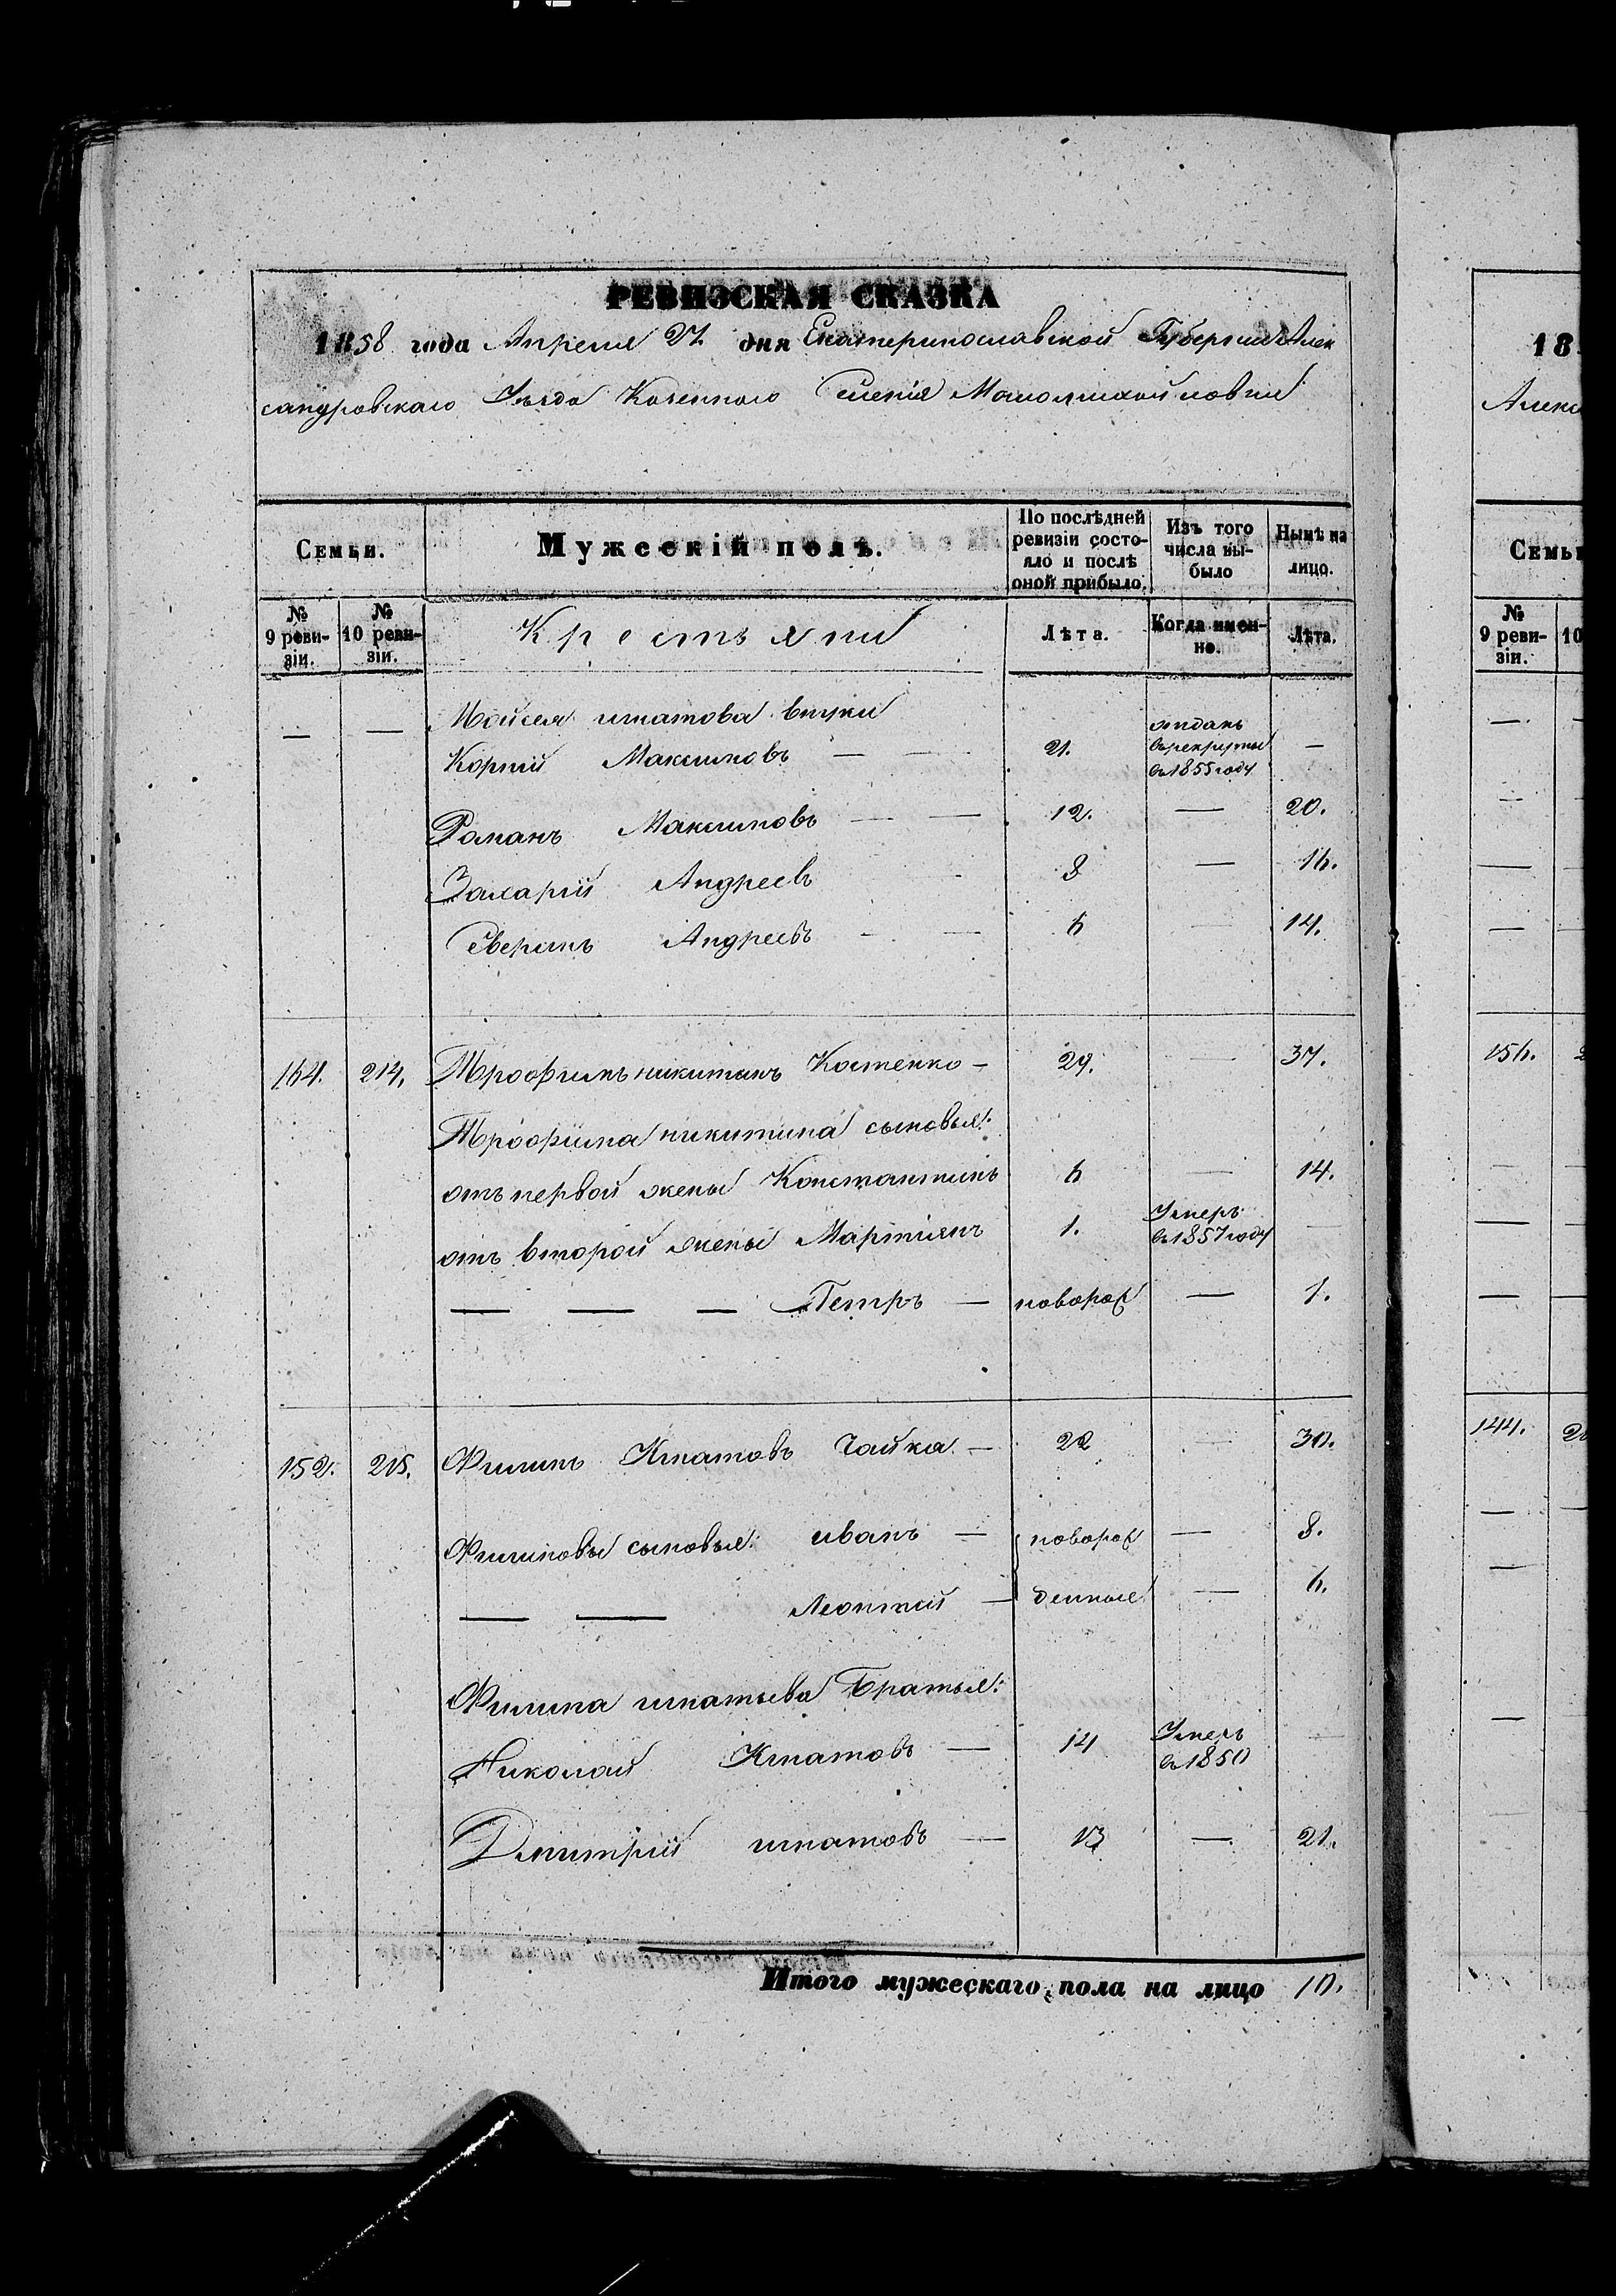 РЕВИЗСКАЯ СКАЗКА
1858 года Апреля 27 дня Екатеринославской Губернiи Алек
сандровскаго Уѣзда Казенного Селенiя Маломихайловки
Семьи.
Мужескiй полъ.
По послѣдней ревизiи состо-
яло и послѣ
оной прибыло.
Изъ того
числа вы-
было
Нынѣ на
лицо.
№
9 реви-
зiи.
№
10 реви-
зiи.
Крестьяни
Лѣта.
Когда имен-
но.
Лѣта.
— — Мойсея игнатова внуки
Корнiй Максимовъ — — 21. отданъ
в рекруты
въ 1855 году —
Романъ Максимовъ — — 12. — 20.
Захарiй Андреевъ — 8 — 16.
Сверянъ Андреевъ — — 6 — 14.
164. 214. Трофимъ никитинъ Костенко — 29. — 37.
Трофима никитина сыновья:
отъ первой жены Константинъ 6 — 14.
отъ второй жены Мартiянъ 1. Умеръ
въ 1857 году —
— — — Петръ — новорож — 1.
152. 215. Филипъ Игнатовъ Чайка — 22 — 30.
Филиповы сыновья: иванъ — новорож — 8.
— — Леонтий — денные — 6.
Филипа игнатьева Братья:
Николай Игнатовъ — 14 Умеръ
въ 1850 —
Дмитрiй игнатовъ — 13 — 21.
Итого мужескаго пола на лицо 10.
18
Алекс
Семьи
№
9 реви-
зiи.
10
156.
144.